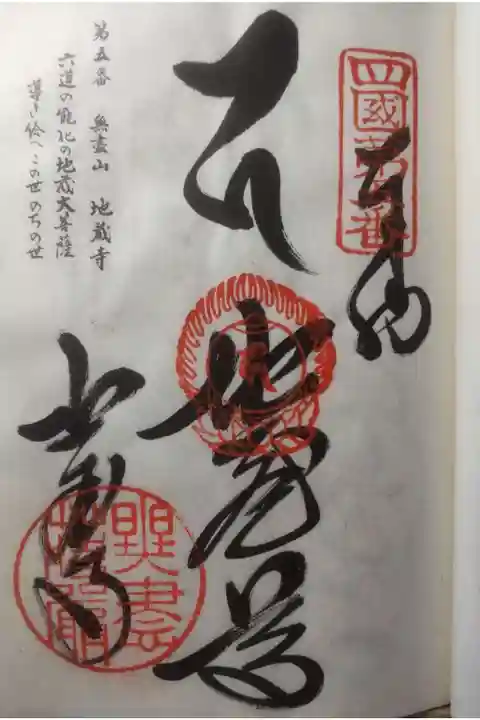 四國第五番
奉納
地蔵尊
地蔵寺
無盡
第五番 無盡山 地蔵寺
六道の能化の地蔵大菩薩
導き給へこの世のちの世